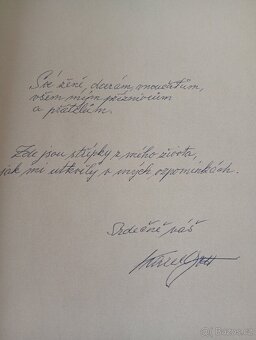 Své ženě, dcerám, vnoučatům,
všem mým příznivcům
a přátelům.
Zde jsou střípky z mého života,
jak mi utkvěly v mých vzpomínkách.
Srdečně váš
Karel Gott
bazos.cz